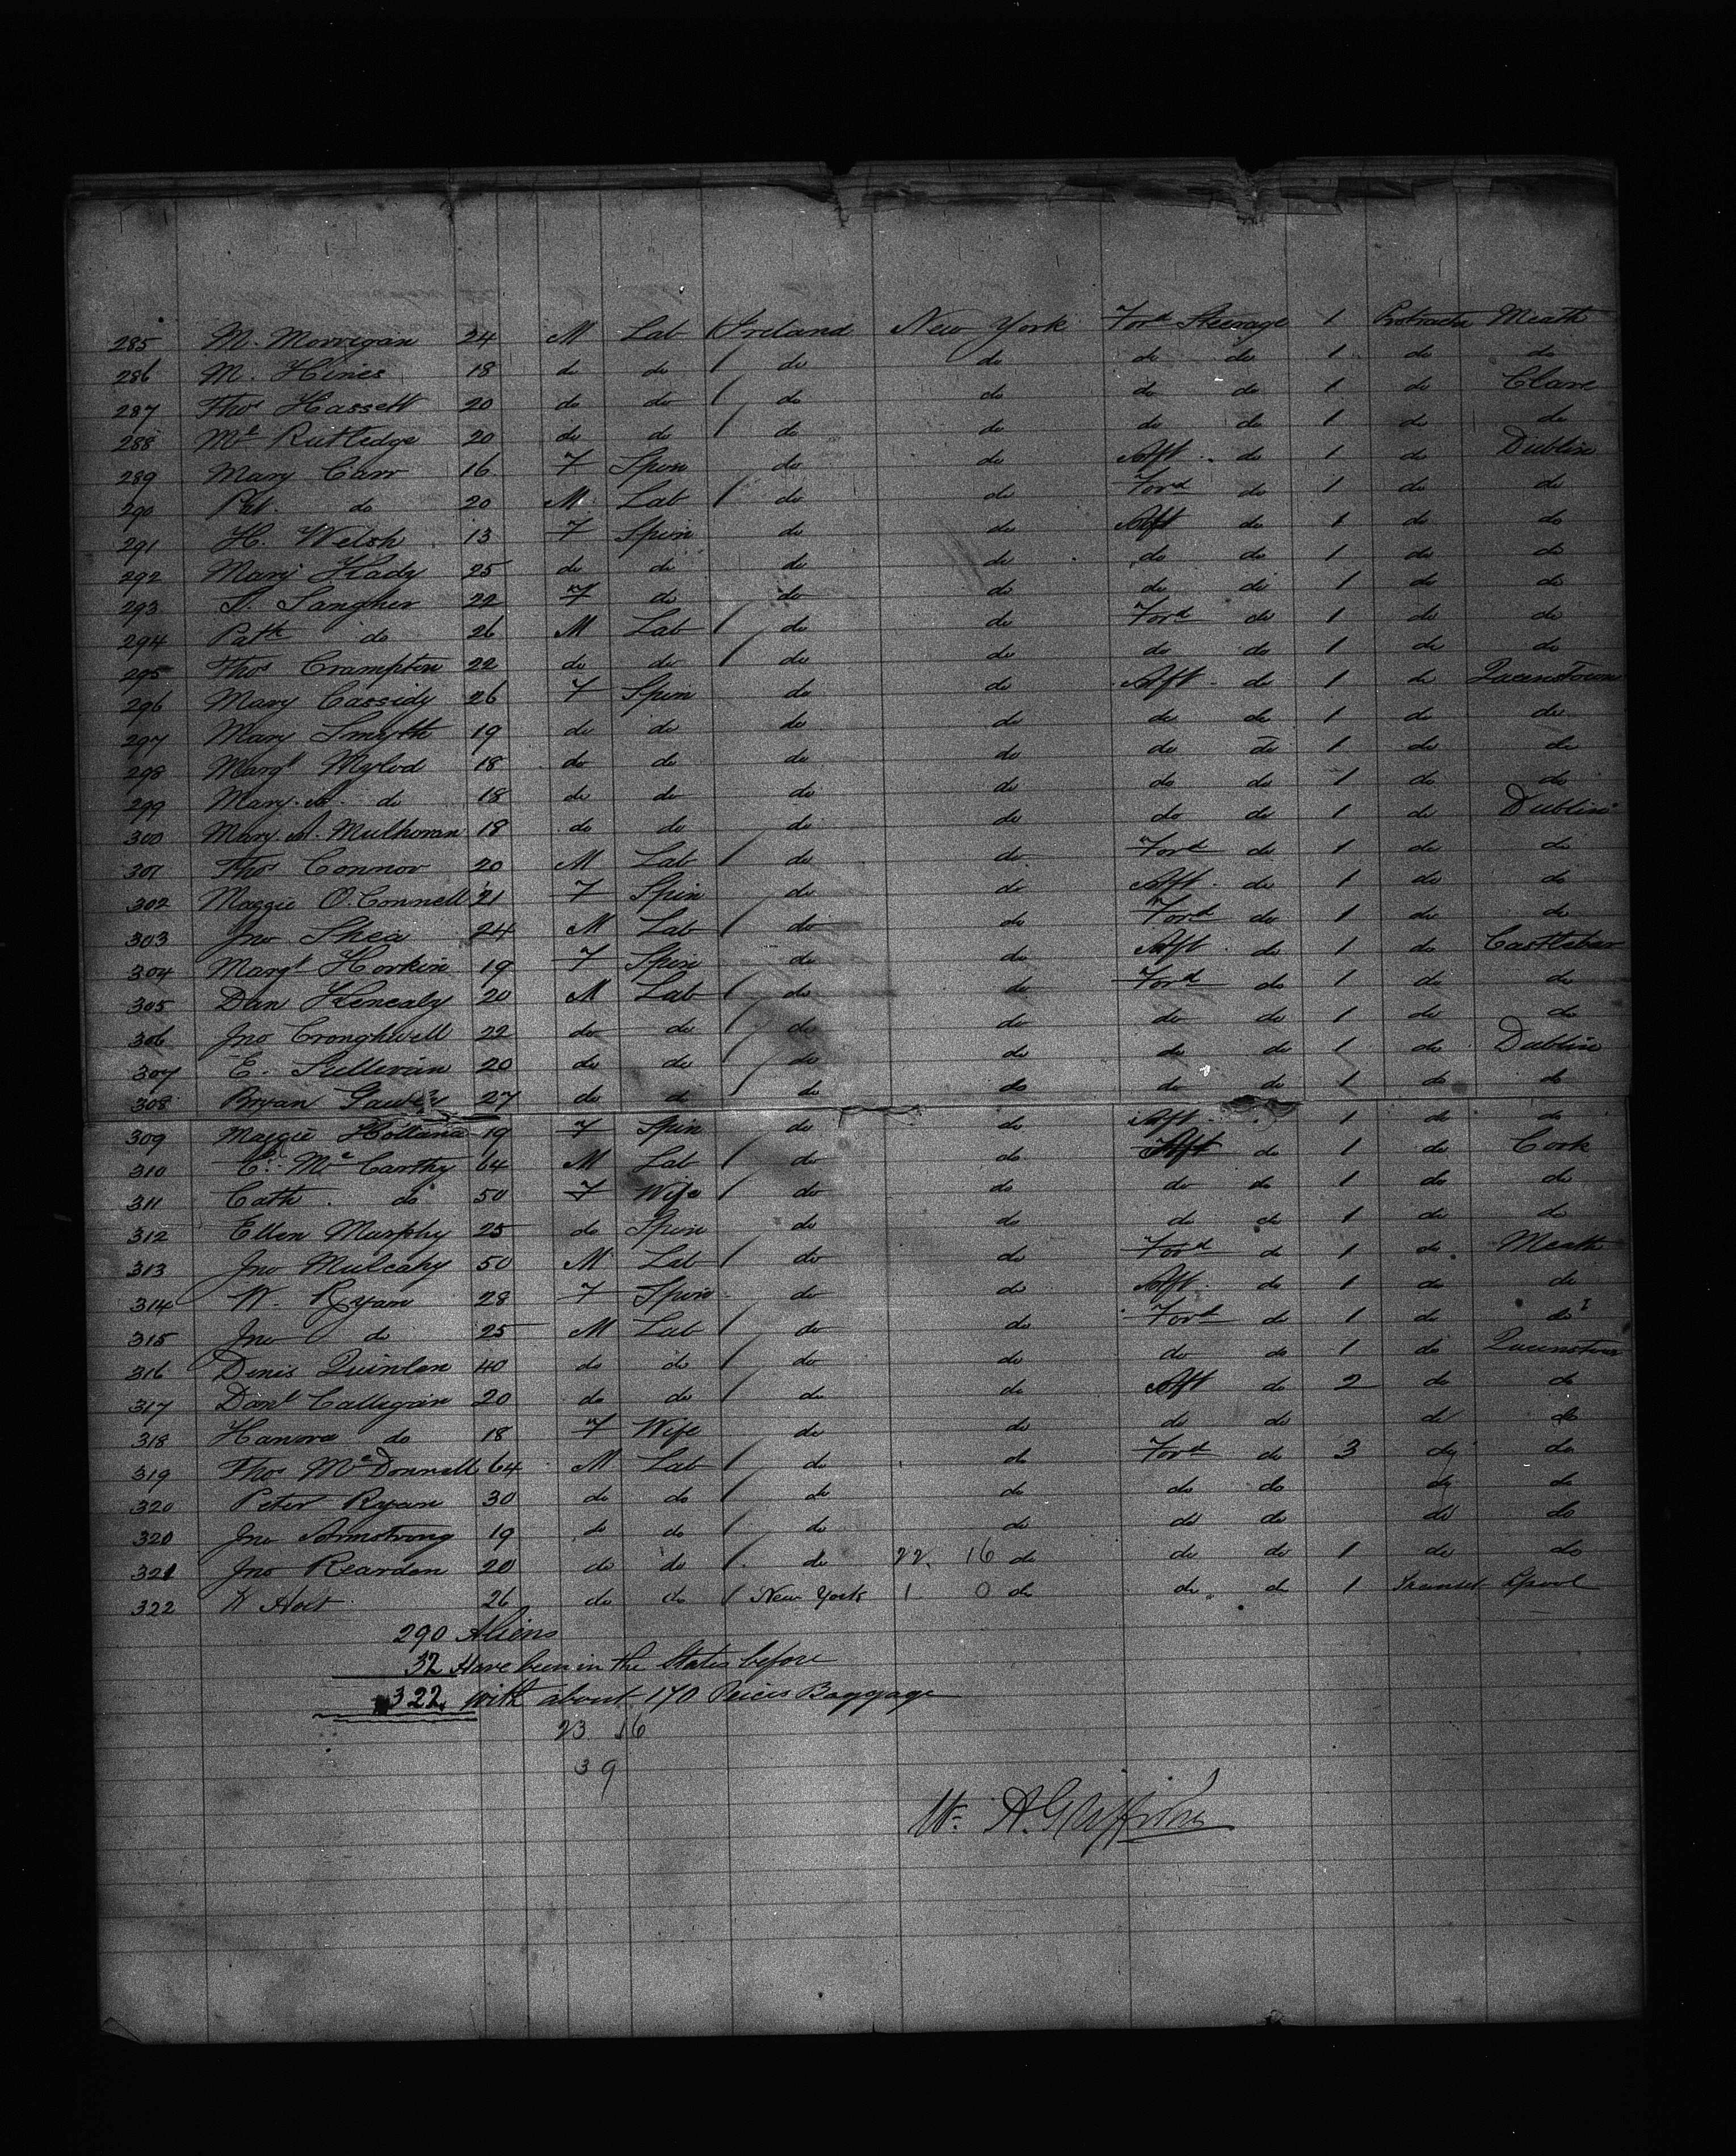 285 M. Morrigan 24 M Lab Ireland New York Ford Steerage 1 Protracted Meath
286 M. Hines 18 do do / do do do do 1 do do
287 Thos Hassett 20 do do / do do do do 1 do Clare
288 Ml Rutledge 20 do do / do do do do 1 do do
289 Mary Carr 16 F Spin do do Aft do 1 do Dublin
290 Pat do 20 M Lab / do do Ford do 1 do do
291 H. Welsh 13 F Spin do do Aft do 1 do do
292 Mary Hady 25 do do do do do do 1 do do
293 D. Sangher 22 F do do do do do 1 do do
294 Patk do 26 M Lab / do do Ford do 1 do do
295 Thos Crampton 22 do do / do do do do 1 do do
296 Mary Cassidy 26 F Spin do do Aft do 1 do Queenstown
297 Mary Smyth 19 do do do do do do 1 do do
298 Margt Mylod 18 do do do do do do 1 do do
299 Mary A. do 18 do do do do do do 1 do do
300 Mary A. Mulhoran 18 do do do do do do 1 do Dublin
301 Thos Connor 20 M Lab / do do Ford do 1 do do
302 Maggie O.Connell 21 F Spin do do Aft do 1 do do
303 Jno Shea 24 M Lab / do do Ford do 1 do do
304 Margt Horkin 19 F Spin do do Aft do 1 do Castlebar
305 Dan Henealy 20 M Lab / do do Ford do 1 do do
306 Jno Cronghwell 22 do do / do do do do 1 do do
307 E. Sullivan 20 do do / do do do do 1 do Dublin
308 Bryan 27 do do / do do do do 1 do do
309 Maggie Holland 19 F Spin do do Aft 1 do do
310 C. McCarthy 64 M Lab / do do Aft do 1 do Cork
311 Cath do 50 F Wife / do do do do 1 do do
312 Ellen Murphy 25 do Spin do do do do 1 do do
313 Jno Mulcahy 50 M Lab / do do Ford do 1 do Meath
314 W. Ryan 28 F Spin do do Aft do 1 do do
315 Jno do 25 M Lab / do do Ford do 1 do do
316 Denis Quinlan 40 do do / do do do do 1 do Queenstown
317 Danl Calligan 20 do do / do do Aft do 2 do do
318 Hanora do 18 F Wife do do do do do do
319 Thos McDonnell 64 M Lab / do do Ford do 3 do do
320 Peter Ryan 30 do do / do do do do do do
320 Jno Armstrong 19 do do / do do do do do do
321 Jno Reardon 20 do do / do 22. 16 do do do 1 do do
322 W Holt 26 do do / New York 1 0 do do do 1 Transit Lpool
290 Aliens
32 Have been in the States before
322 With about 170 Peices Baggage
23 16
39
W. A. Griffiths